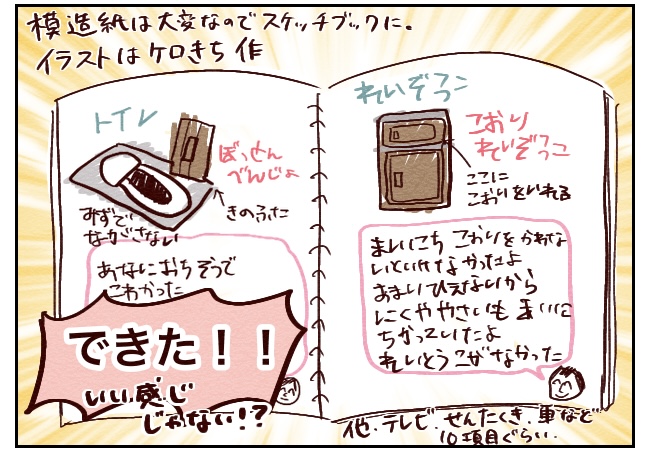 模造紙は大変なのでスケッチブックに。
イラストはケロきち作
トイレ
ぼっせん
べんじょ
きのふた
みずで
ながさない
あなにおちそうで
こわかった
れいぞうこ
こおり
れいぞうこ
ここに
こおりをいれる
まいにちこおりをかわな
いといけなかったよ
あまりひえないから
にくややさいもまいに
ちかっていたよ
れいとうこがなかった
できた！！
いい感じ
じゃない！？
他、テレビ、せんたくき、車など
10項目ぐらい